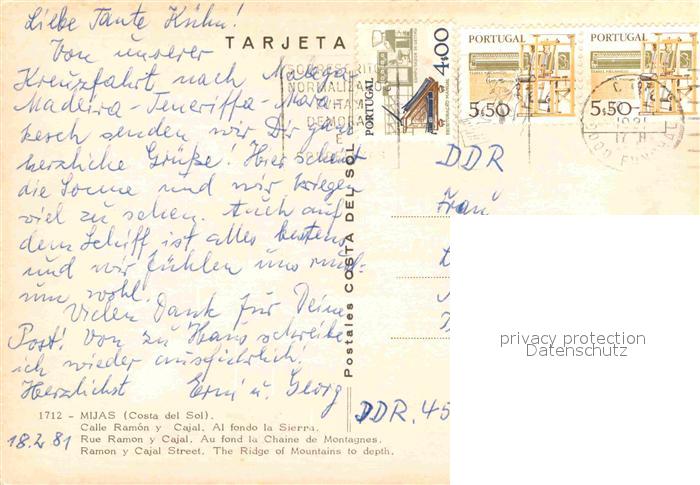 Liebe Tante Kühn!
Von unserer
Kreuzfahrt nach Malaga-
Madeira-Teneriffa-Mara-
kesch senden wir Dir ganz
herzliche Grüße! Hier scheint
die Sonne und wir kriegen
viel zu sehen. Auch auf
dem Schiff ist alles bestens
und wir fühlen uns rund-
um wohl.
Vielen Dank für Deine
Post! Von zu Haus schreibe
ich wieder ausführlich!
Herzlichst Erni u. Georg
1712 - MIJAS (Costa del Sol).
Calle Ramón y Cajal. Al fondo la Sierra.
18.2.81 Rue Ramon y Cajal. Au fond la Chaine de Montagnes.
Ramon y Cajal Street. The Ridge of Mountains to depth.
TARJETA
Postales COSTA DEL SOL
PORTUGAL 4$00
PORTUGAL
5$50
PORTUGAL
5$50
CODRESCRITO
NORMALIZADO
DDR
Frau
DDR. 45
privacy protection
Datenschutz